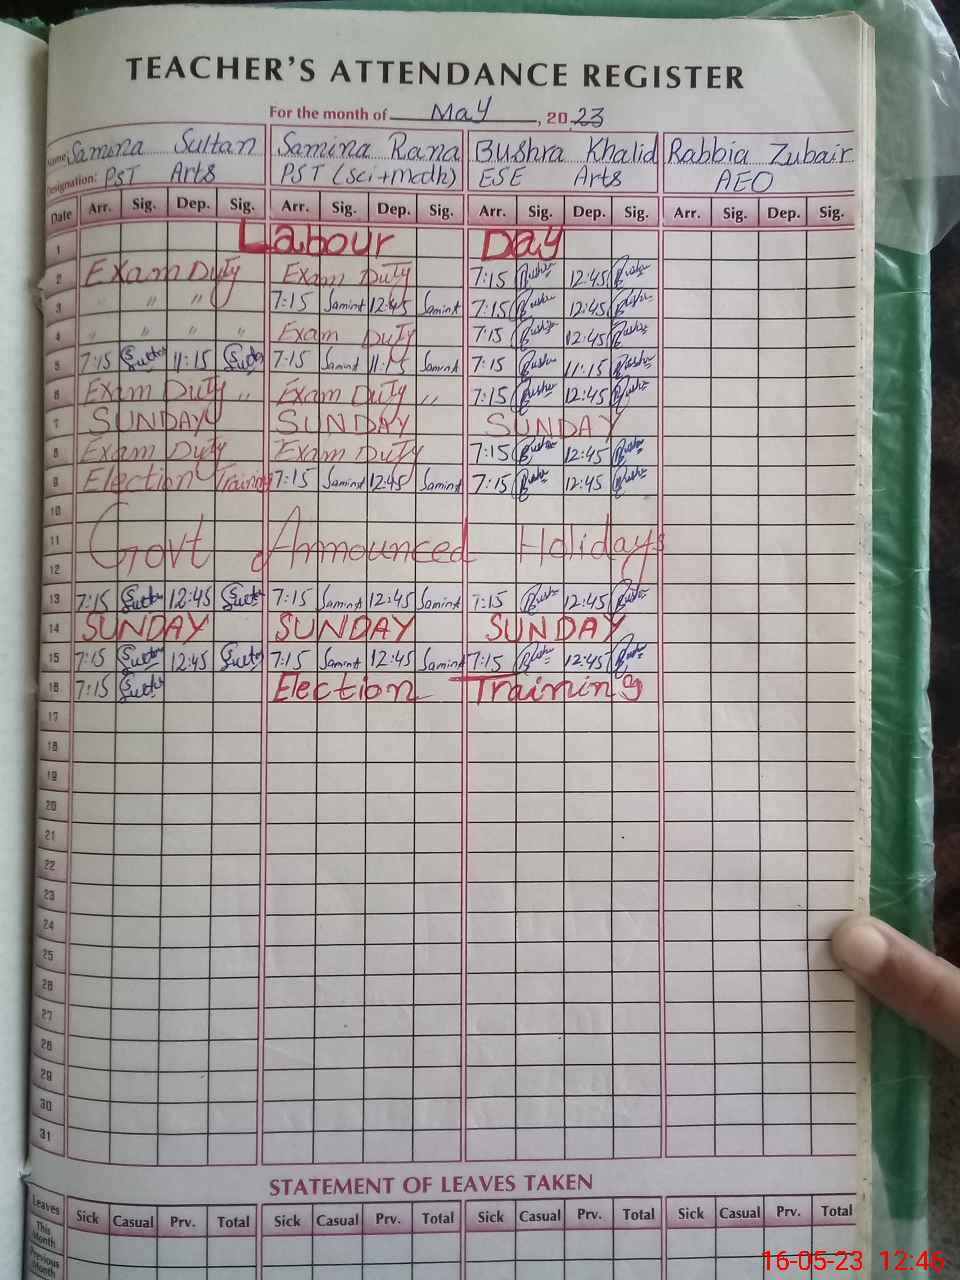 TEACHER'S ATTENDANCE REGISTER
For the month of May, 2023
Name: Samina Sultan Samina Rana Bushra Khalid Rabbia Zubair
Designation: PST Arts PST (sci+math) ESE Arts AEO
Date Arr. Sig. Dep. Sig. Arr. Sig. Dep. Sig. Arr. Sig. Dep. Sig. Arr. Sig. Dep. Sig.
1 Labour Day
2 Exam Duty Exam Duty 7:15 12:45
3 " " " 7:15 Samina 12:45 Samina 7:15 12:45
4 " " " " Exam Duty 7:15 12:45
5 7:15 11:15 7:15 Samina 11:15 Samina 7:15 11:15
6 Exam Duty " Exam Duty " 7:15 12:45
7 SUNDAY SUNDAY SUNDAY
8 Exam Duty Exam Duty 7:15 12:45
9 Election Training 7:15 Samina 12:45 Samina 7:15 12:45
10
11 Govt Announced Holidays
12
13 7:15 12:45 7:15 Samina 12:45 Samina 7:15 12:45
14 SUNDAY SUNDAY SUNDAY
15 7:15 12:45 7:15 Samina 12:45 Samina 7:15 12:45
16 7:15 Election Training
17
18
19
20
21
22
23
24
25
26
27
28
29
30
31
STATEMENT OF LEAVES TAKEN
Leaves Sick Casual Prv. Total Sick Casual Prv. Total Sick Casual Prv. Total Sick Casual Prv. Total
This Month
Previous Month
16-05-23 12:46